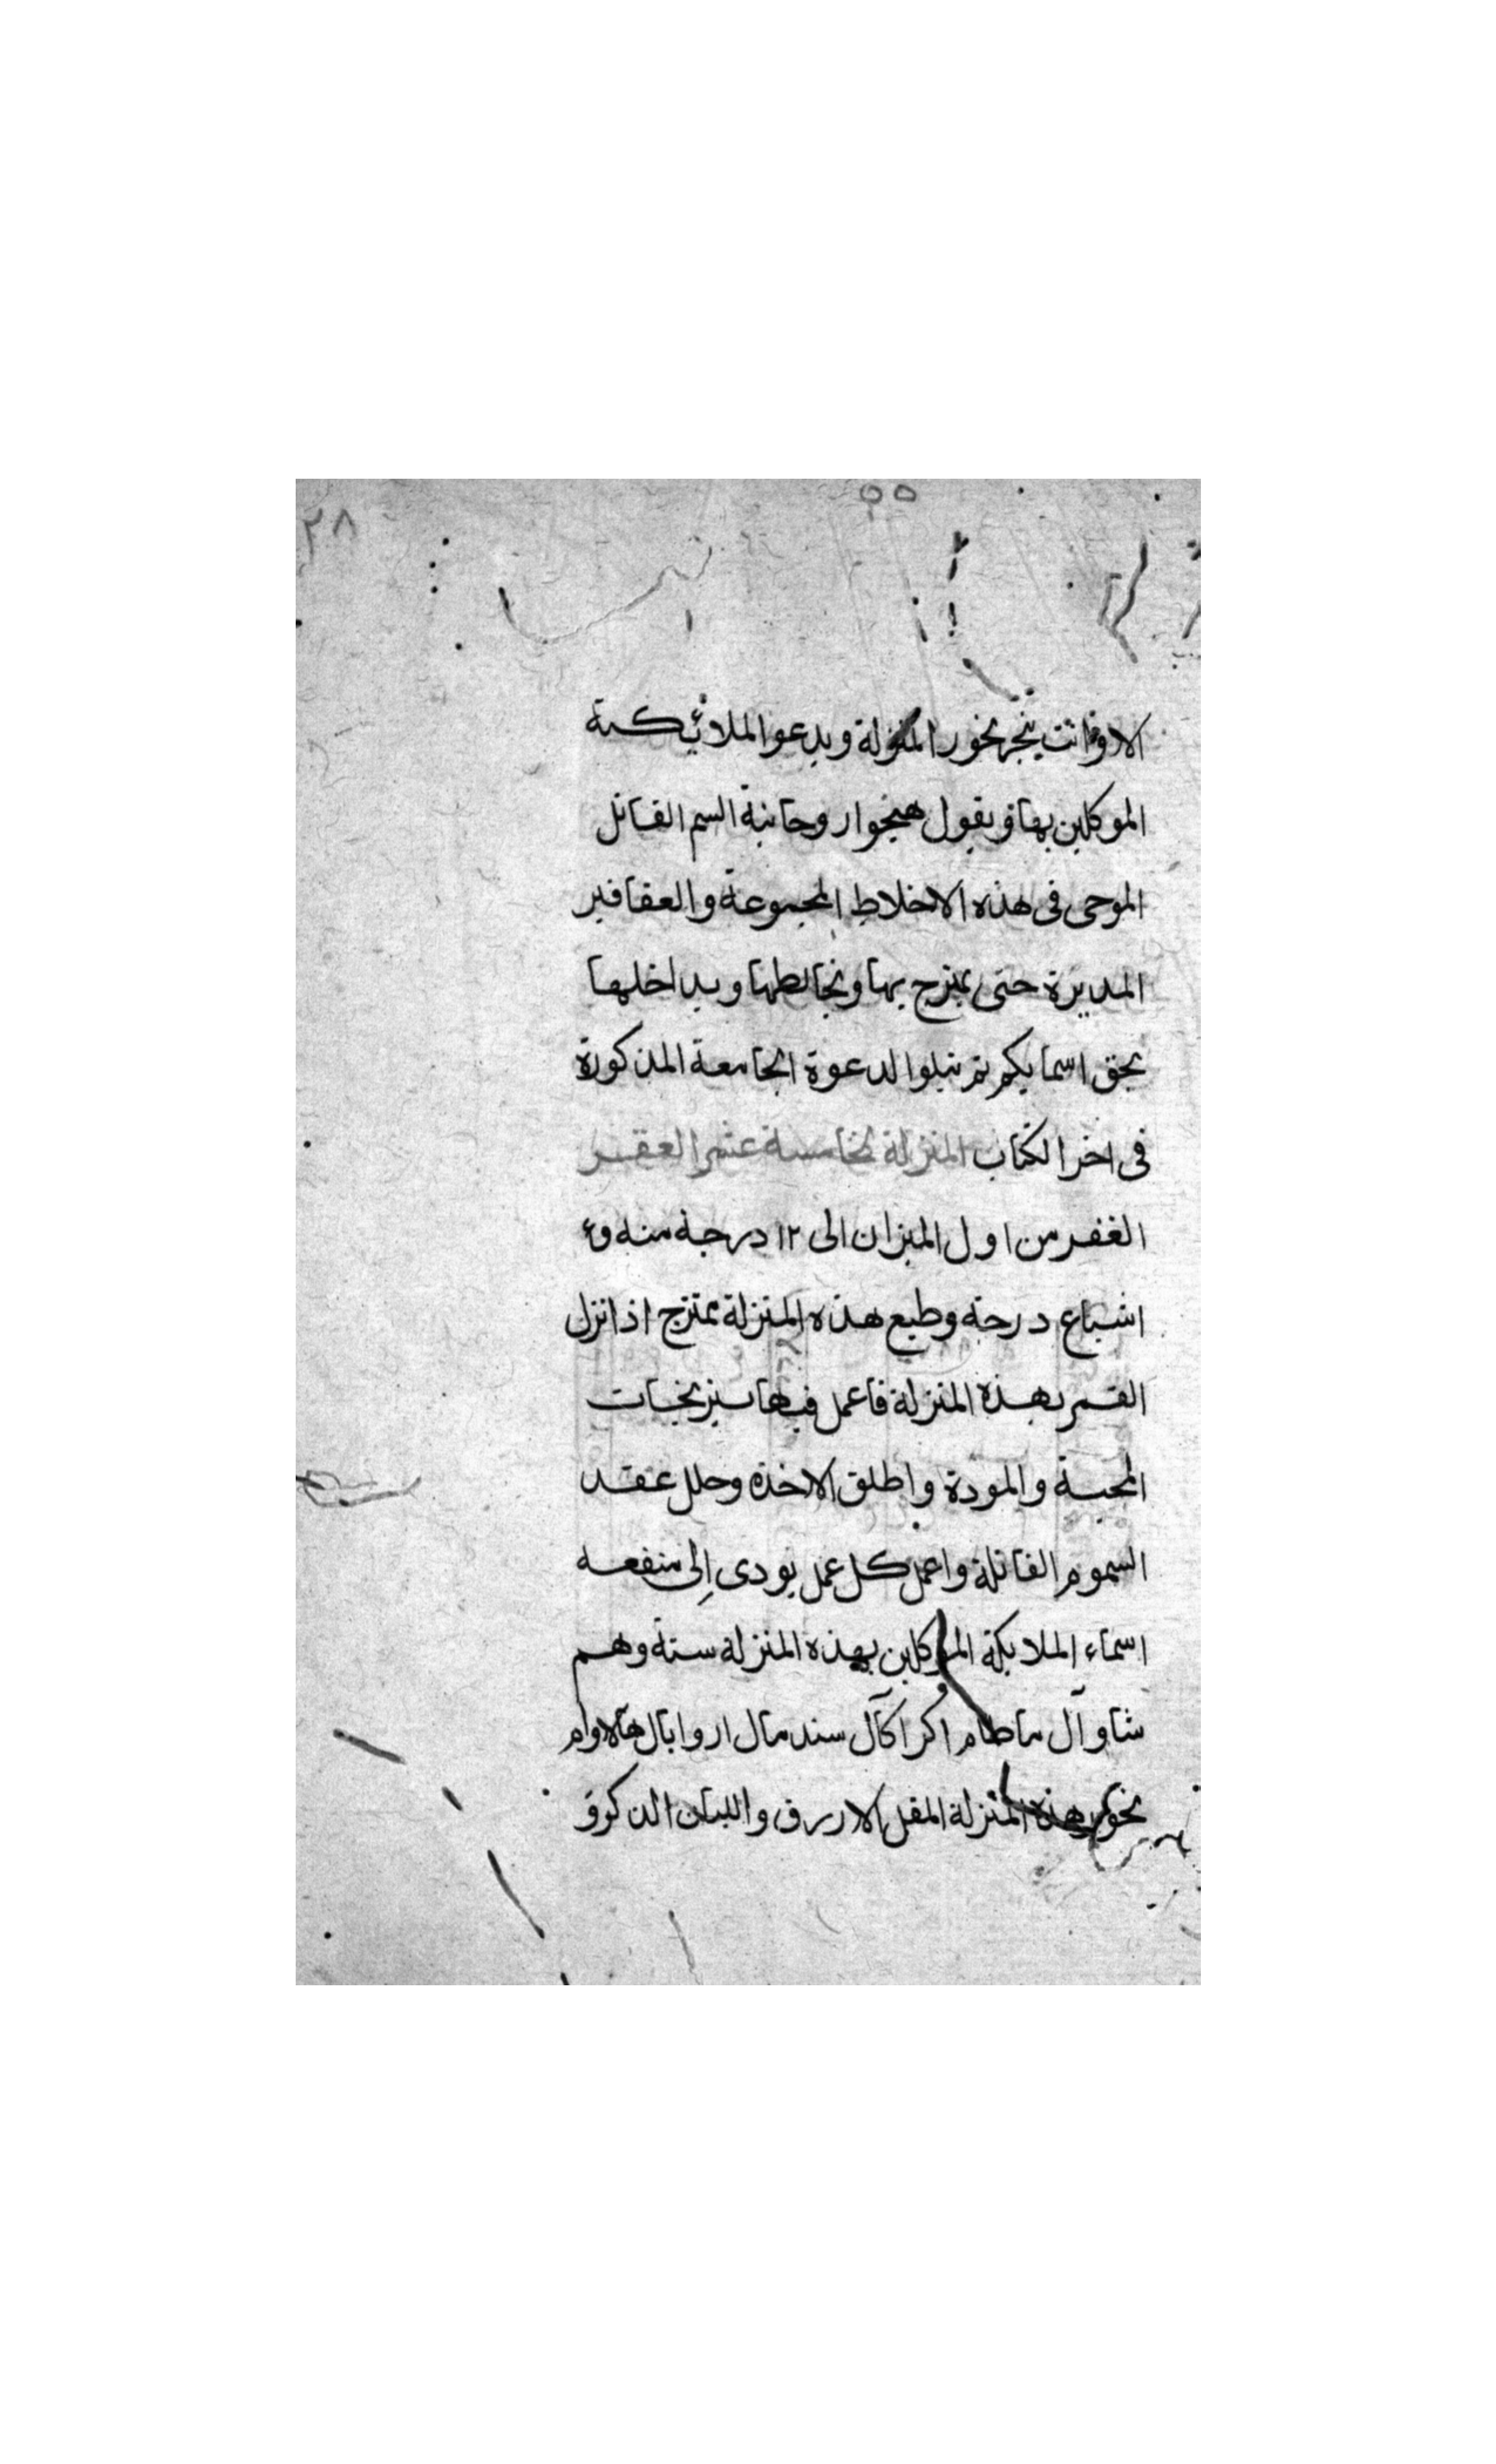 ٥٥
٢٨
الا وانت يبخر بخور المنزلة ويدعوا الملائكة
الموكلين بها ويقول هيجوا روحانية السم القاتل
الموحى فى هذه الاخلاط المجموعة والعقاقير
المدبرة حتى يمتزج بها ويخالطها ويداخلها
بحق اسمايكم ثم يتلوا الدعوة الجامعة المذكورة
فى اخر الكتاب المنزلة الخامسة عشر الغفر
الغفر من اول الميزان الى ١٢ درجة منه و٤
اسباع درجة وطبع هذه المنزلة ممتزج اذا نزل
القمر بهذه المنزلة فاعمل فيها نيرنجات
المحبة والمودة واطلق الاخذة وحلل عقد
السموم القاتلة واعمل كل عمل يودى إلى منفعه
اسماء الملايكة الموكلين بهذه المنزلة ستة وهم
شاوآل ماطام اكراكآل سندمال اروابال هالاوام
بخور هذه المنزلة المقل الازرق واللبان الذكرو